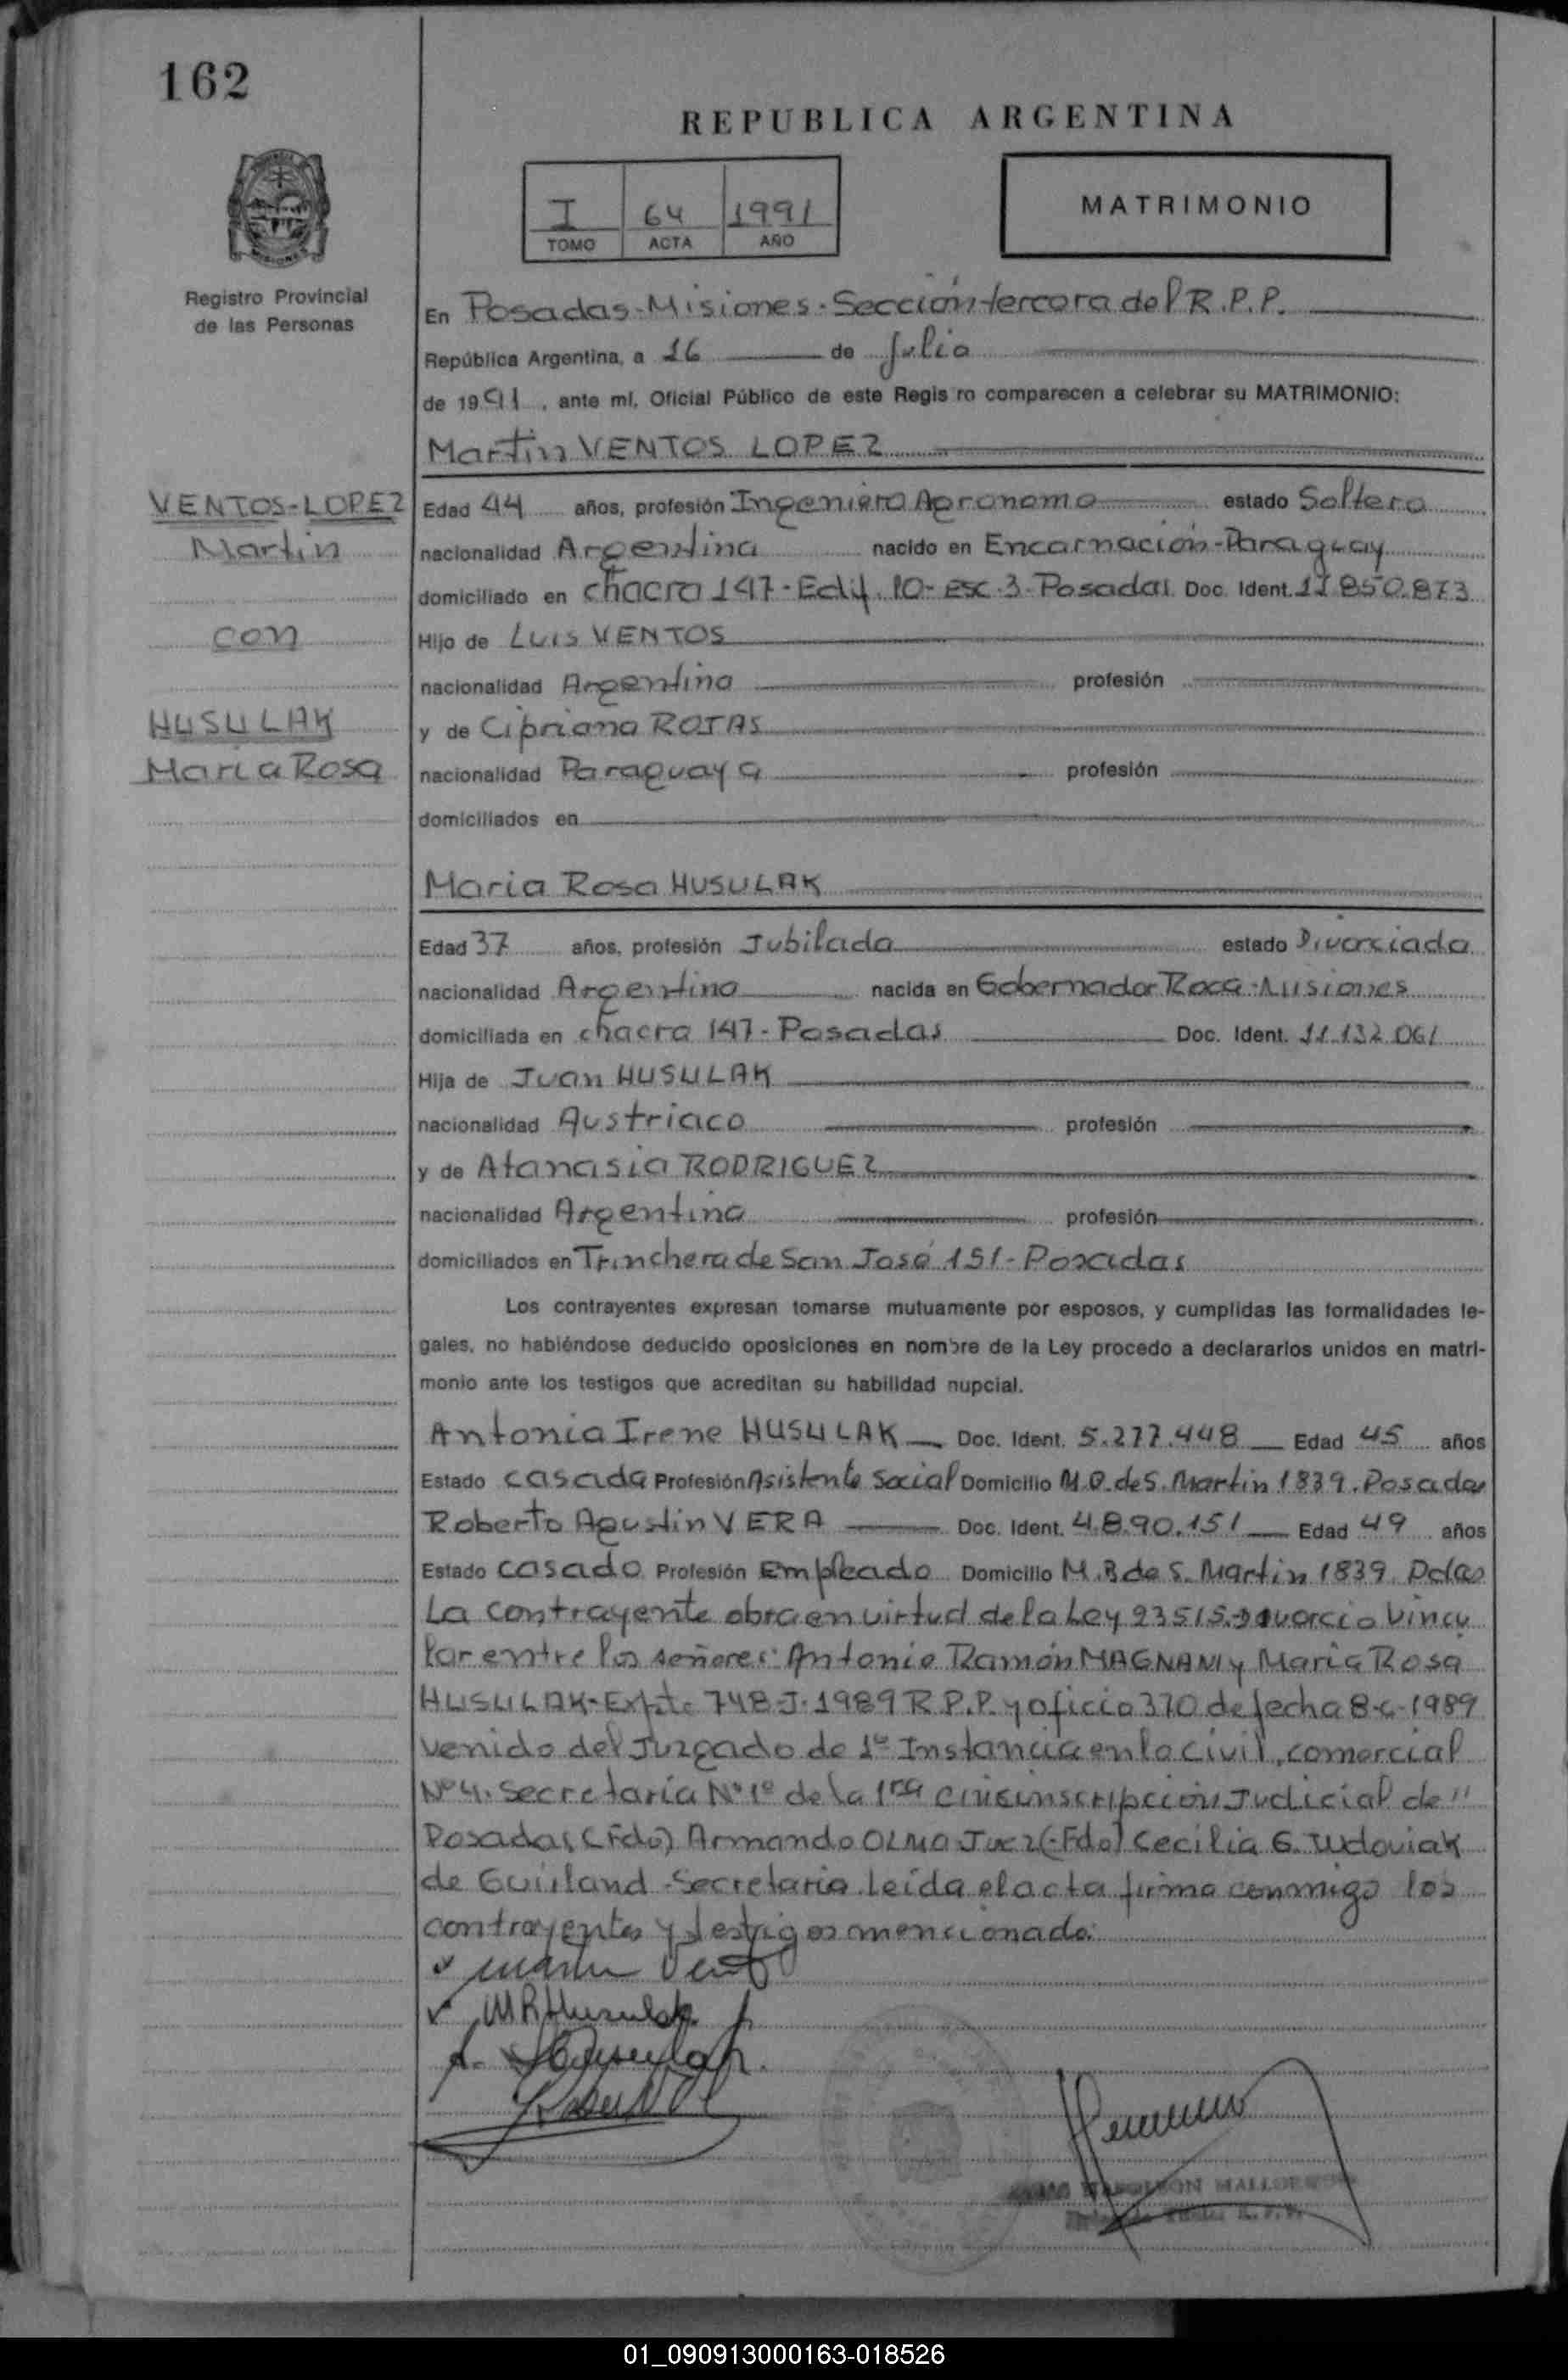 162
REPUBLICA ARGENTINA
I 64 1991
TOMO ACTA AÑO
MATRIMONIO
Registro Provincial
de las Personas
En Posadas-Misiones-Sección tercera del R.P.P.
República Argentina, a 16 de Julio
de 1991, ante mí, Oficial Público de este Regis ro comparecen a celebrar su MATRIMONIO:
Martin VENTOS LOPEZ
VENTOS-LOPEZ
Martin
con
HUSULAK
Maria Rosa
Edad 44 años, profesión Ingeniero Agronomo estado Soltero
nacionalidad Argentina nacido en Encarnación-Paraguay
domiciliado en chacra 147-Edif. 10-esc.3-Posadas Doc. Ident. 11.850.873
Hijo de Luis VENTOS
nacionalidad Argentina profesión
y de Cipriana ROJAS
nacionalidad Paraguaya profesión
domiciliados en
Maria Rosa HUSULAK
Edad 37 años, profesión Jubilada estado Divorciada
nacionalidad Argentina nacida en Gobernador Roca-Misiones
domiciliada en chacra 147-Posadas Doc. Ident. 11.132.061
Hija de Juan HUSULAK
nacionalidad Austriaco profesión
y de Atanasia RODRIGUEZ
nacionalidad Argentina profesión
domiciliados en Trinchera de San José 151-Posadas
Los contrayentes expresan tomarse mutuamente por esposos, y cumplidas las formalidades le-
gales, no habiéndose deducido oposiciones en nombre de la Ley procedo a declararlos unidos en matri-
monio ante los testigos que acreditan su habilidad nupcial.
Antonia Irene HUSULAK Doc. Ident. 5.277.448 Edad 45 años
Estado casada Profesión Asistente Social Domicilio M.O. de S. Martin 1839. Posadas
Roberto Agustin VERA Doc. Ident. 4.890.151 Edad 49 años
Estado casado Profesión Empleado Domicilio M.B de S. Martin 1839. Pdas
La contrayente obra en virtud de la Ley 23515. Divorcio Vincu
lar entre los señores: Antonio Ramón MAGNANI y Maria Rosa
HUSULAK-Expte 748-J-1989 R.P.P. y oficio 370 de fecha 8-6-1989
venido del Juzgado de 1º Instancia en lo civil, comercial
Nº 4. Secretaría Nº 1º de la 1ra circunscripción Judicial de "
Posadas (Fdo) Armando OLMO Juez (-Fdo) Cecilia G. de
Secretaria. Leída el acta firma conmigo los
contrayentes y testigos mencionado.
Martin Vent
MRHusulak
A. Husulak
NAPOLEON
R.P.P.
01_090913000163-018526